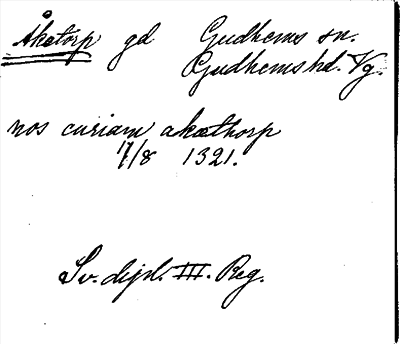 Åketorp gd Gudhems sn.
Gudhems hd. Vg.
nos curiam akæthorp
17/8 1321.
Sv. dipl. III. Reg.